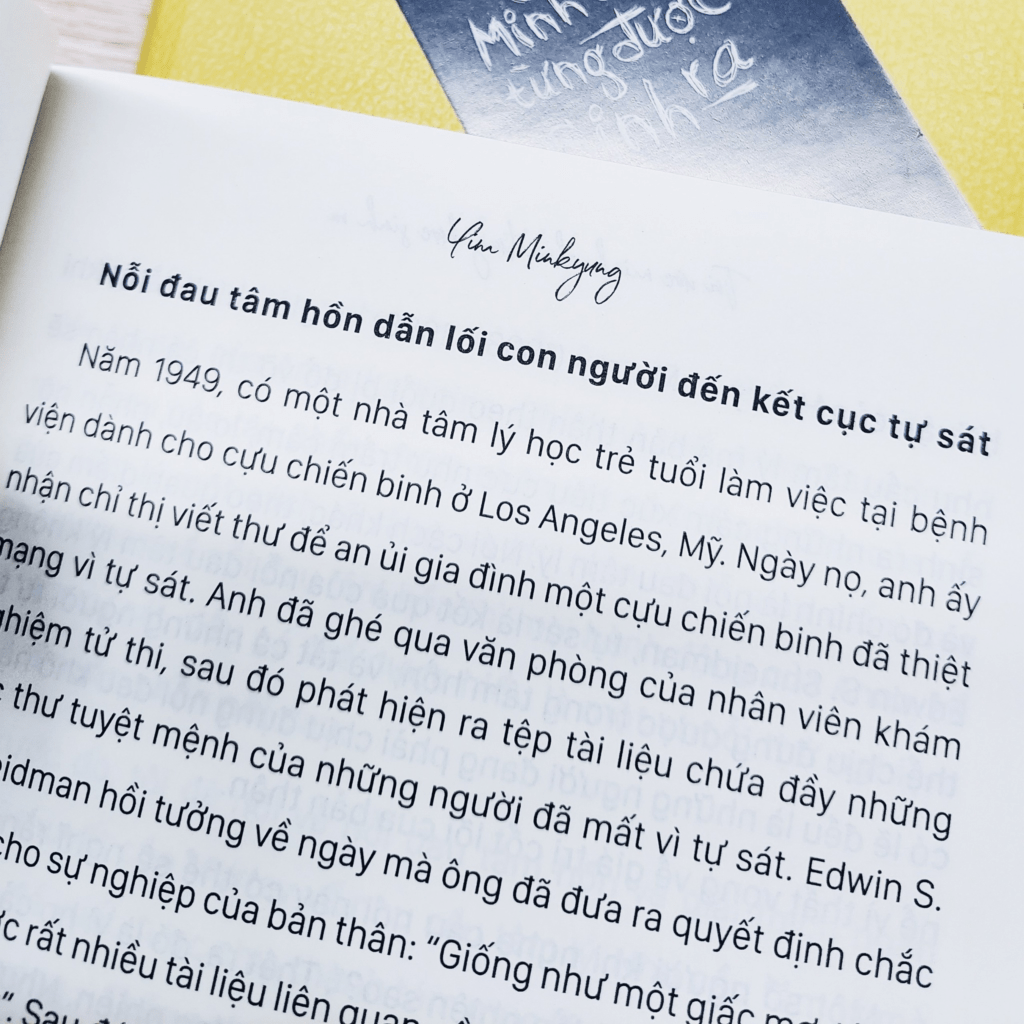 Minh
từng được
sinh ra
Yim Minkyung
Nỗi đau tâm hồn dẫn lối con người đến kết cục tự sát
Năm 1949, có một nhà tâm lý học trẻ tuổi làm việc tại bệnh
viện dành cho cựu chiến binh ở Los Angeles, Mỹ. Ngày nọ, anh ấy
nhận chỉ thị viết thư để an ủi gia đình một cựu chiến binh đã thiệt
mạng vì tự sát. Anh đã ghé qua văn phòng của nhân viên khám
nghiệm tử thi, sau đó phát hiện ra tệp tài liệu chứa đầy những
thư tuyệt mệnh của những người đã mất vì tự sát. Edwin S.
hồi tưởng về ngày mà ông đã đưa ra quyết định chắc
cho sự nghiệp của bản thân: “Giống như một giấc
rất nhiều tài liệu liên quan
”. Sau